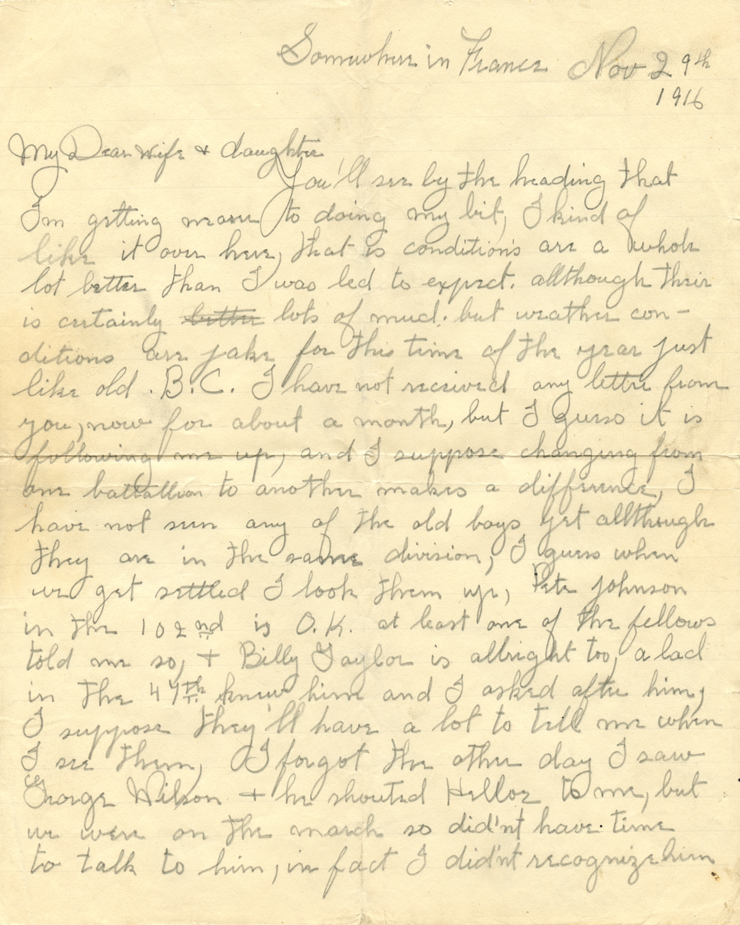 Somewhere in France Nov 29th
1916
My Dear Wife & daughter
You'll see by the heading that
I'm getting nearer to doing my bit, I kind of
like it over here, that is conditions are a whole
lot better than I was led to expect. allthough their
is certainly better lots of mud. but weather con-
ditions are jake for this time of the year just
like old . B.C. I have not received any letter from
you, now for about a month, but I guess it is
following me up, and I suppose changing from
one battallion to another makes a difference, I
have not seen any of the old boys yet allthough
they are in the same division, I guess when
we get settled I look them up, Pete Johnson
in the 102nd is O.K. at least one of the fellows
told me so, & Billy Taylor is allright too, a lad
in the 47th knew him and I asked after him,
I suppose they'll have a lot to tell me when
I see them, I forgot the other day I saw
George Wilson & he shouted Helloe to me, but
we were on the march so did'nt have time
to talk to him, in fact I did'nt recognize him